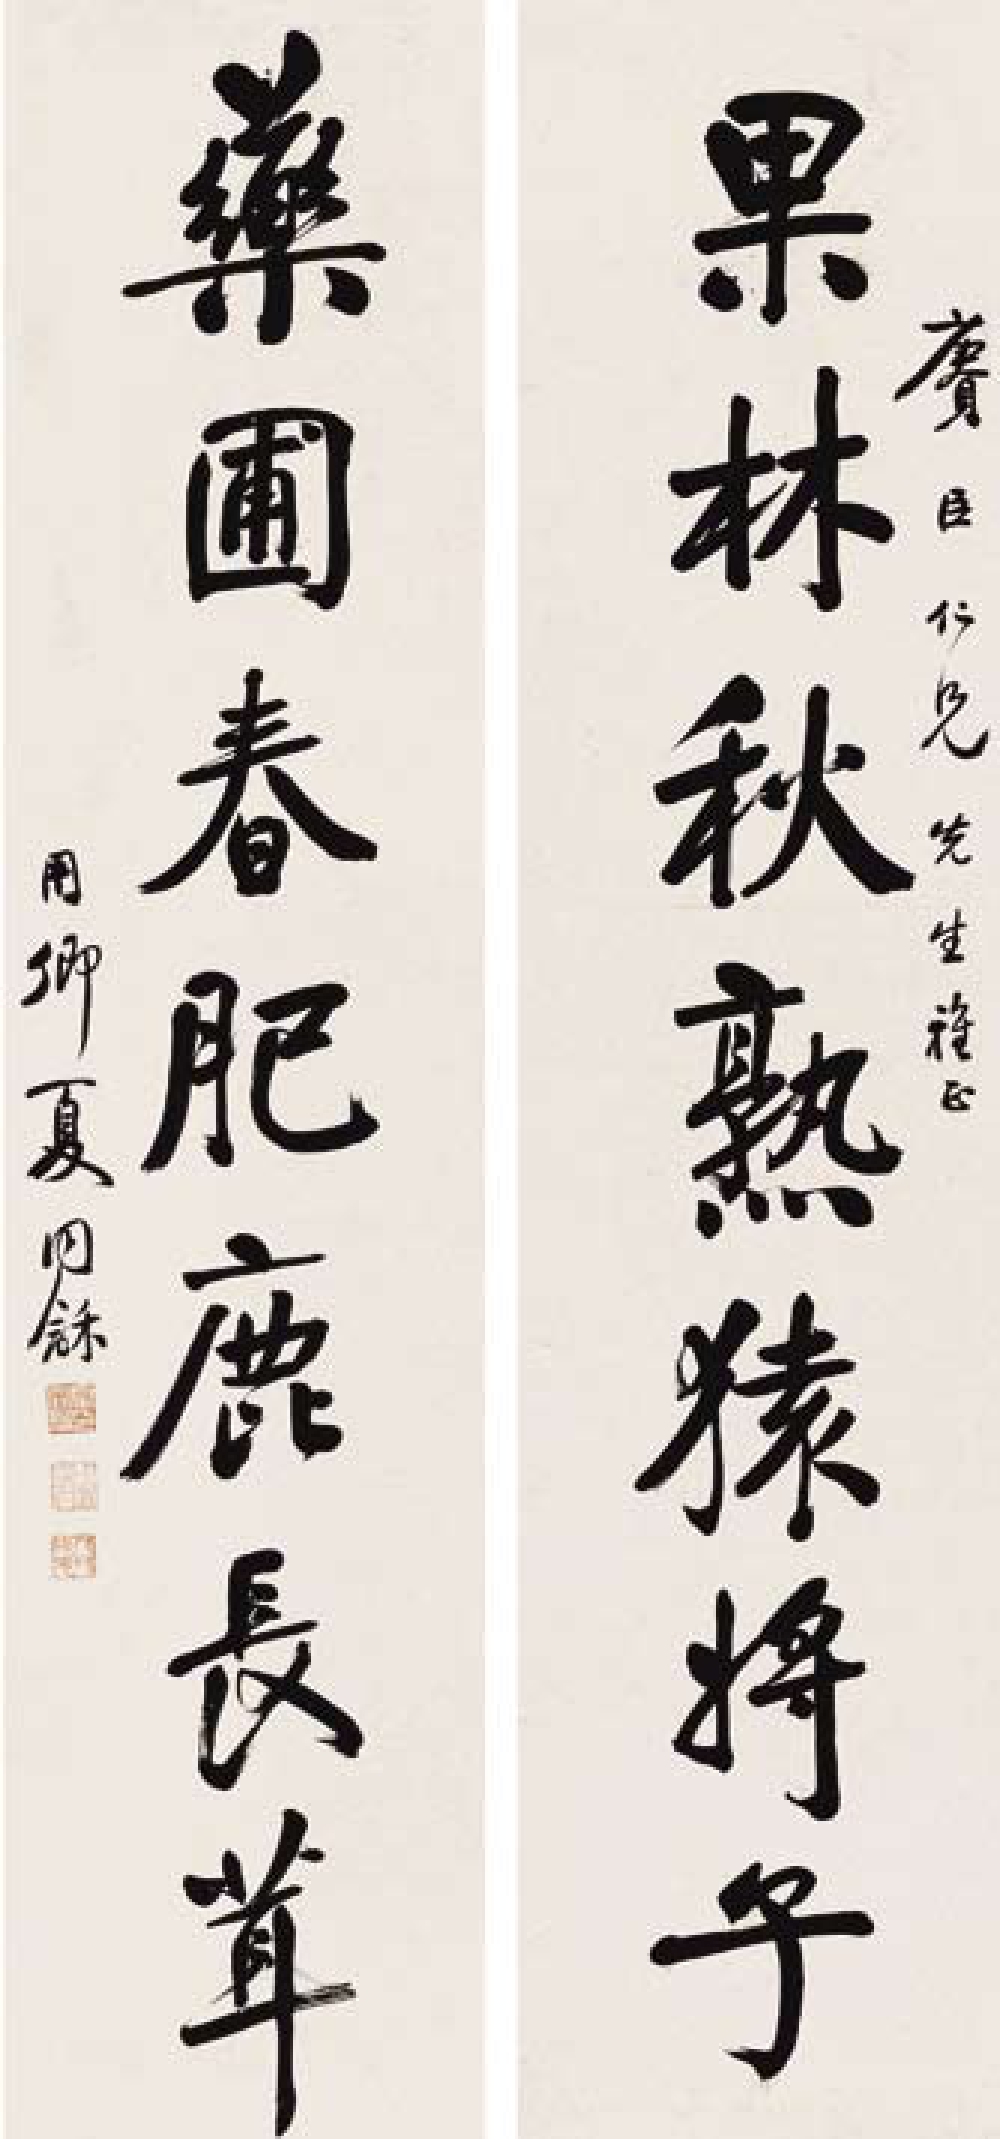 果林秋熟猿將子
賡臣仁兄先生雅正
藥圃春肥鹿長茸
用卿夏同龢